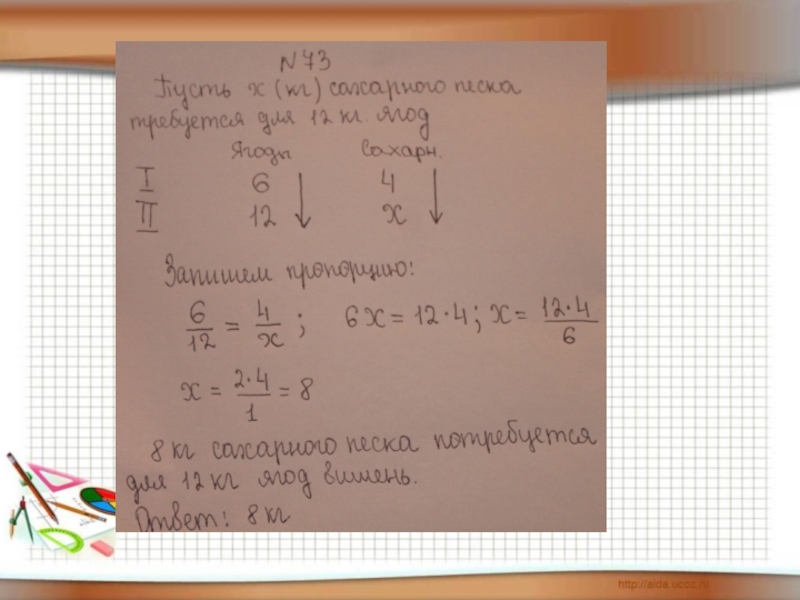 N 73
Пусть x (кг) сахарного песка
требуется для 12 кг. ягод
Ягоды Сахарн.
I 6 ↓ 4 ↓
II 12 x
Запишем пропорцию:
6/12 = 4/x ; 6x = 12·4; x = 12·4/6
x = 2·4/1 = 8
8 кг сахарного песка потребуется
для 12 кг ягод вишень.
Ответ: 8 кг
http://aida.ucoz.ru